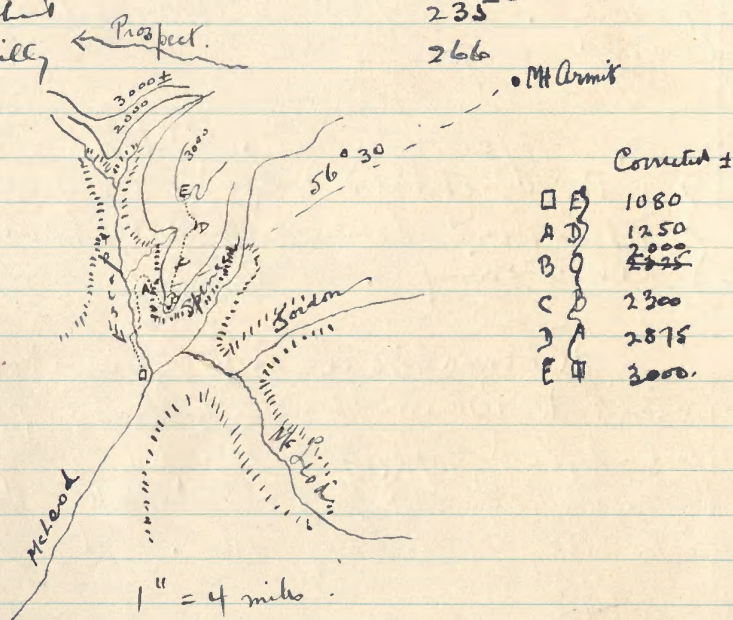 235
← Prospect.
266
• Mt Armit
3000±
2000
3000
56° 30
E
D
A
B
Spencer
Jordon
McLeod
McLeod
1" = 4 miles.
Corrected ±
□ E 1080
A D 1250
2000
B C 2325
C B 2300
D A 2875
E □ 3000.